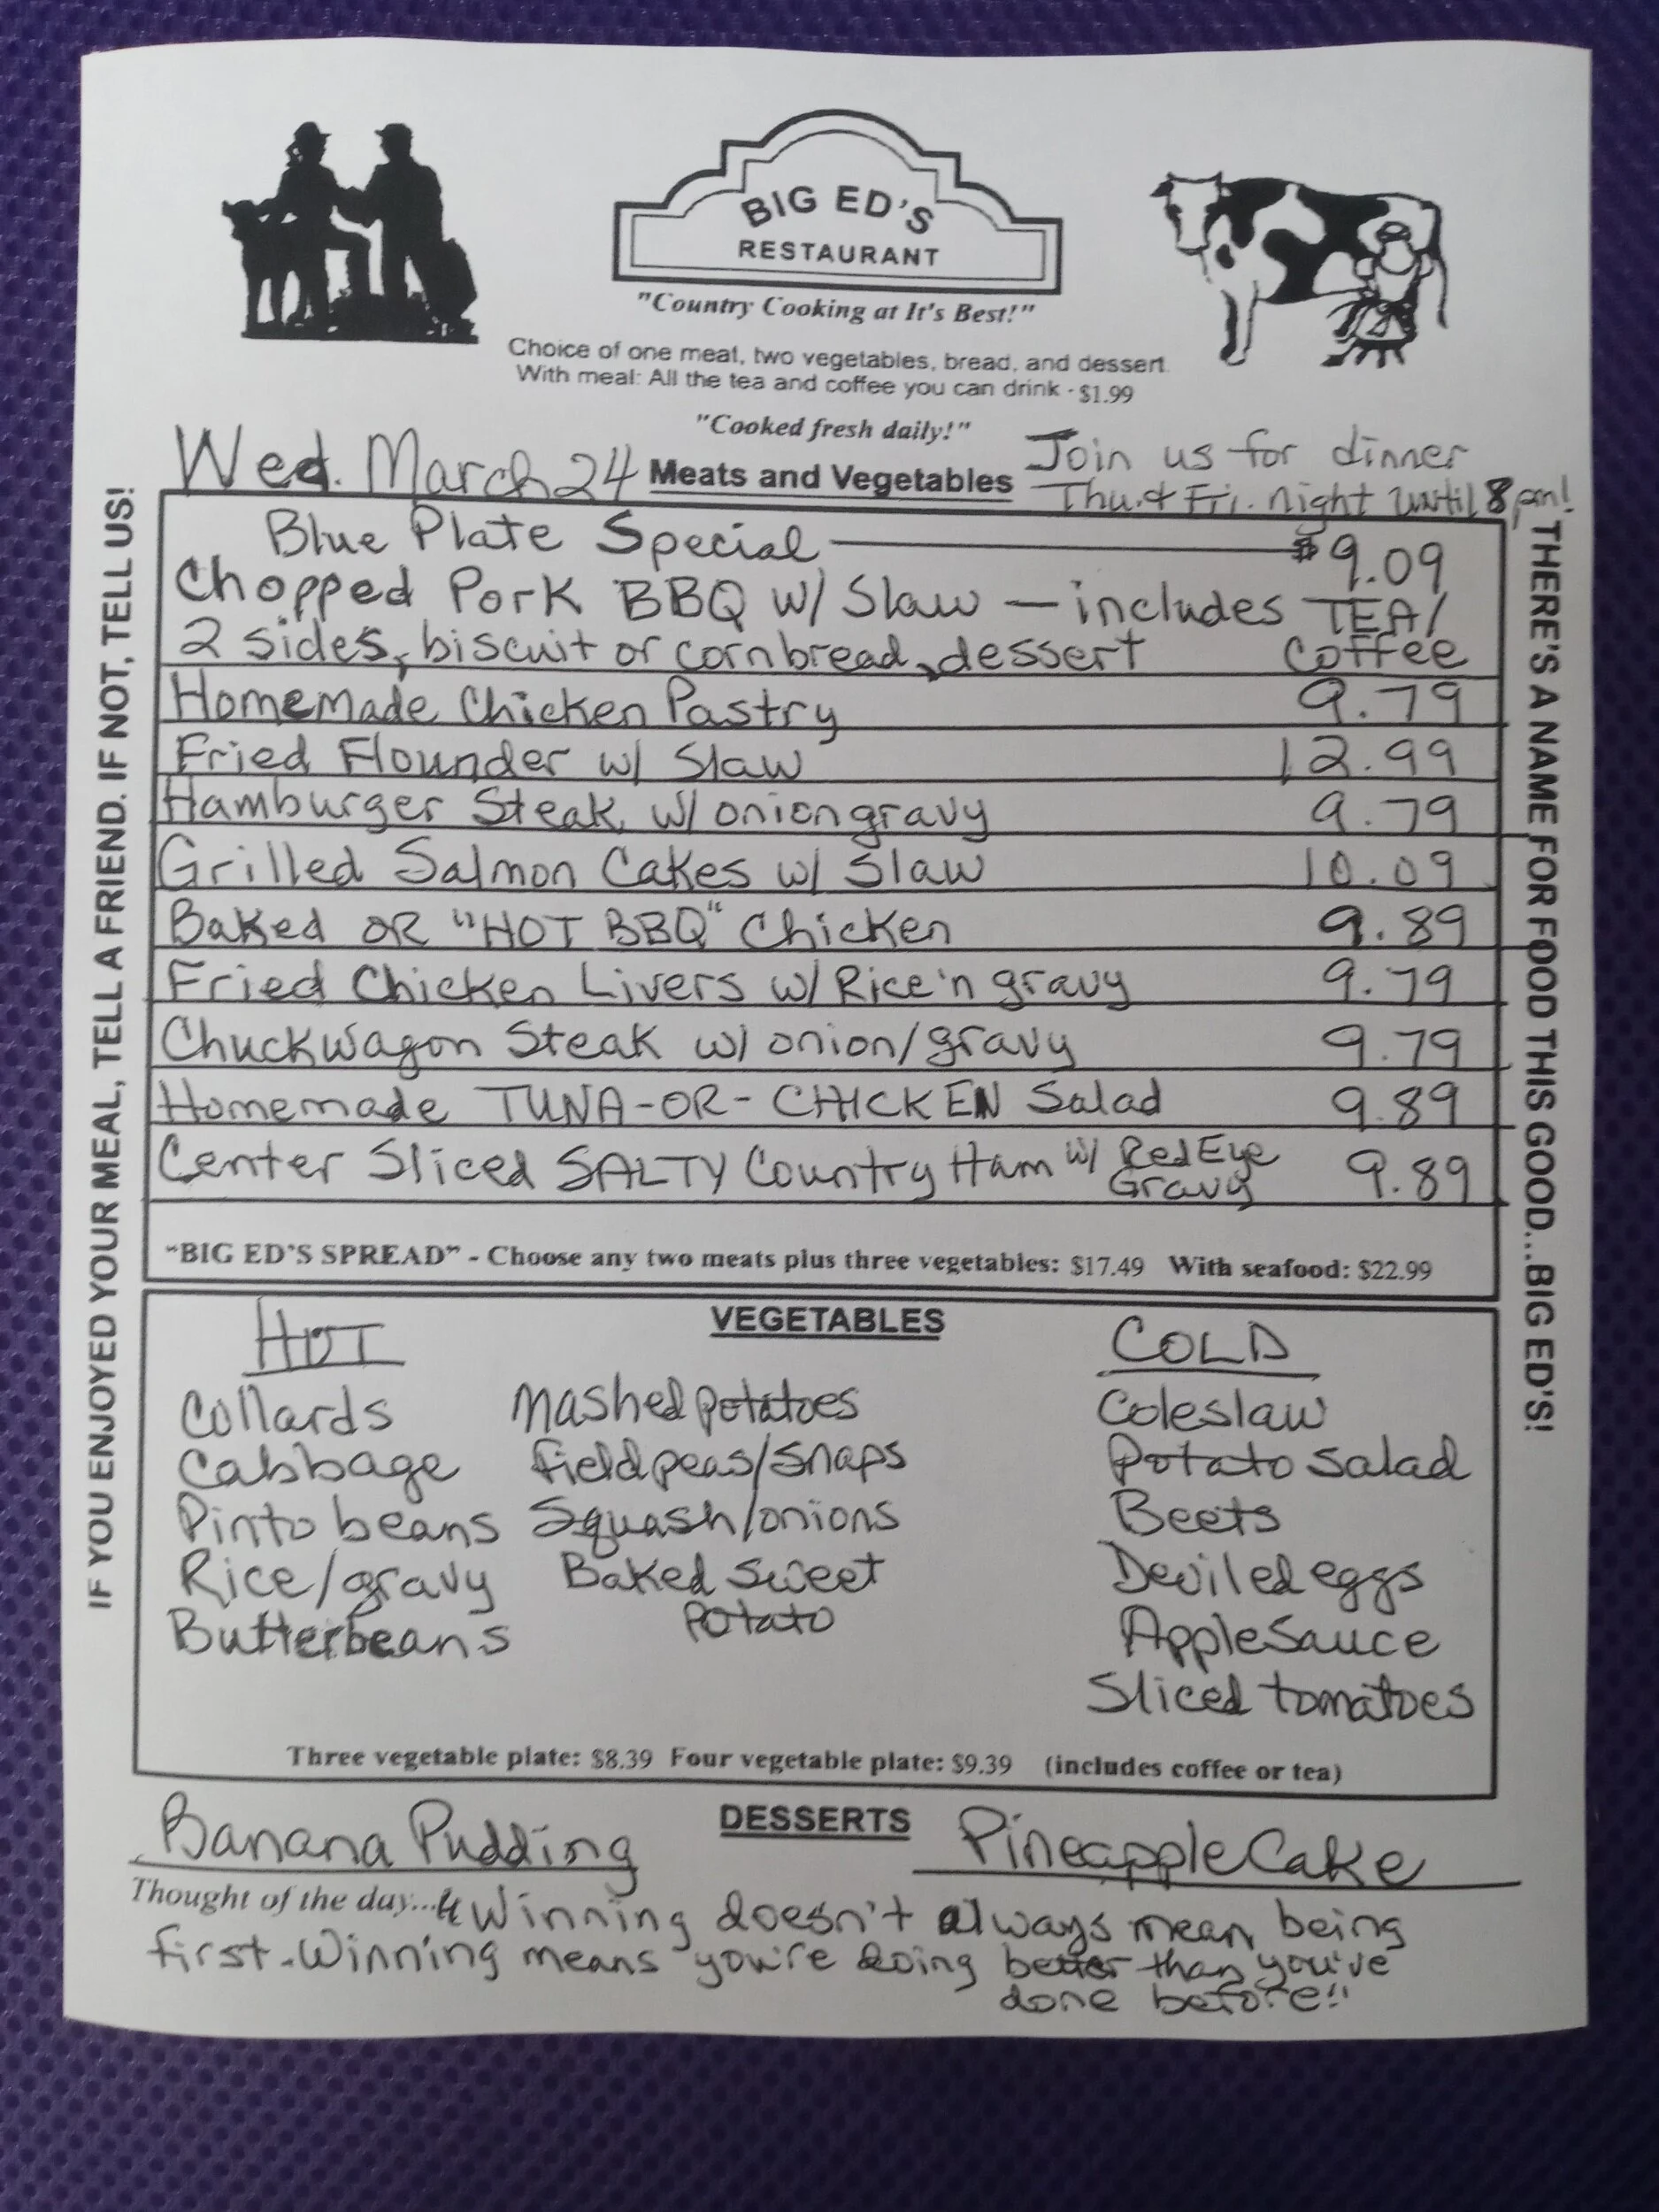 BIG ED'S
RESTAURANT
"Country Cooking at It's Best!"
Choice of one meat, two vegetables, bread, and dessert.
With meal: All the tea and coffee you can drink - $1.99
"Cooked fresh daily!"
Wed. March 24
Meats and Vegetables
Join us for dinner
Thu. & Fri. night until 8pm!
Blue Plate Special — $9.09
Chopped Pork BBQ w/ Slaw — includes TEA/
2 sides, biscuit or cornbread, dessert coffee
Homemade Chicken Pastry 9.79
Fried Flounder w/ Slaw 12.99
Hamburger Steak w/ onion gravy 9.79
Grilled Salmon Cakes w/ Slaw 10.09
Baked OR "HOT BBQ" Chicken 9.89
Fried Chicken Livers w/ Rice 'n gravy 9.79
Chuckwagon Steak w/ onion/gravy 9.79
Homemade TUNA-OR-CHICKEN Salad 9.89
Center Sliced SALTY Country Ham w/ Red Eye Gravy 9.89
"BIG ED'S SPREAD" - Choose any two meats plus three vegetables: $17.49 With seafood: $22.99
VEGETABLES
HOT
Collards
Cabbage
Pinto beans
Rice/gravy
Butterbeans
Mashed potatoes
field peas/snaps
Squash/onions
Baked sweet
Potato
COLD
Coleslaw
Potato salad
Beets
Deviled eggs
AppleSauce
Sliced tomatoes
Three vegetable plate: $8.39 Four vegetable plate: $9.39 (includes coffee or tea)
DESSERTS
Banana Pudding
Pineapple Cake
Thought of the day... "Winning doesn't always mean being
first. Winning means you're doing better than you've
done before!!
IF YOU ENJOYED YOUR MEAL, TELL A FRIEND. IF NOT, TELL US!
THERE'S A NAME FOR FOOD THIS GOOD...BIG ED'S!